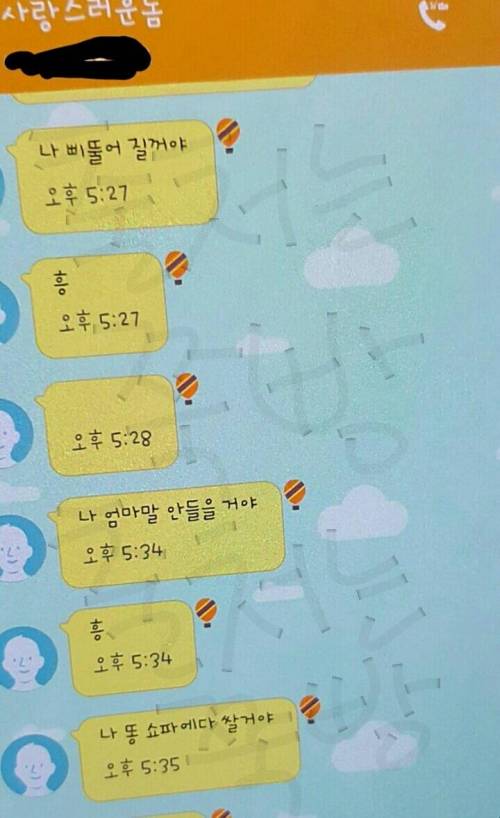 사랑스러운놈
나 삐뚤어 질꺼야
오후 5:27
흥
오후 5:27
오후 5:28
나 엄마말 안들을 거야
오후 5:34
흥
오후 5:34
나 똥 쇼파에다 쌀거야
오후 5:35